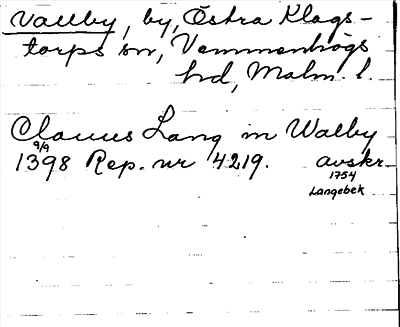 Vallby, by, Östra Klags-
torps sn, Vemmenhögs
hd, Malm. l.
Clauus Lang in Walby
9/9
1398 Rep. nr 4219. avskr.
1754
Langebek